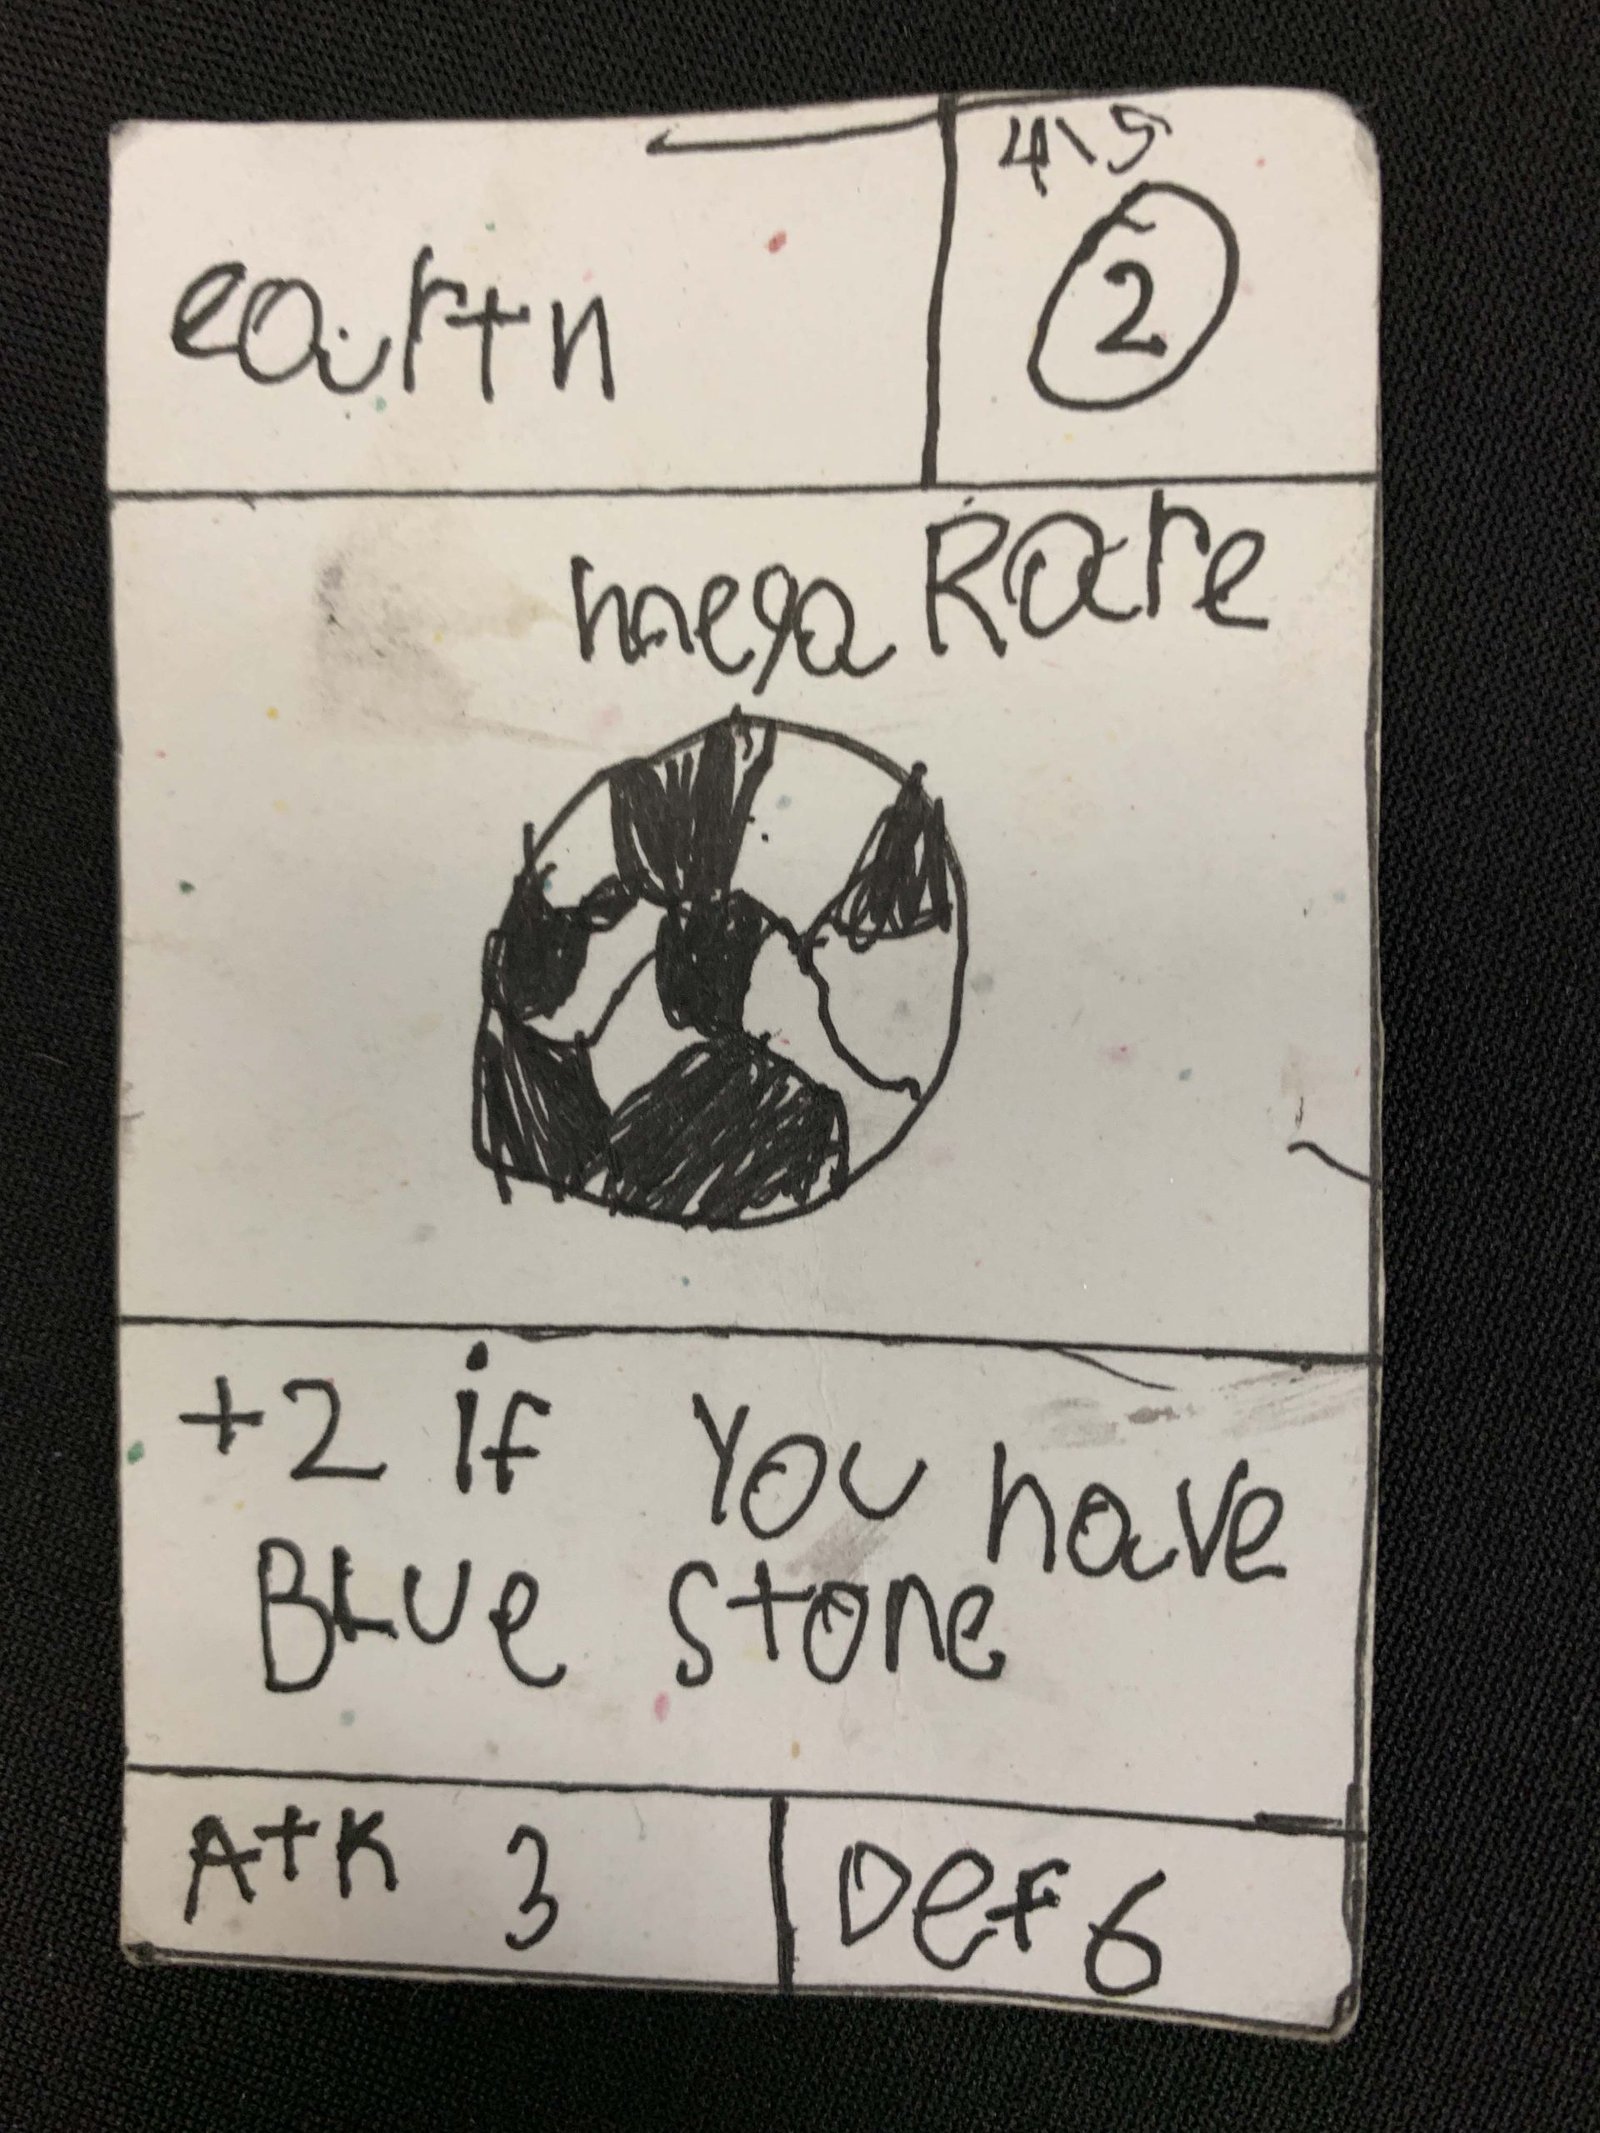 earth
4\5
2
mega Rare
+2 if you have
BLUe stone
Atk 3
Def 6